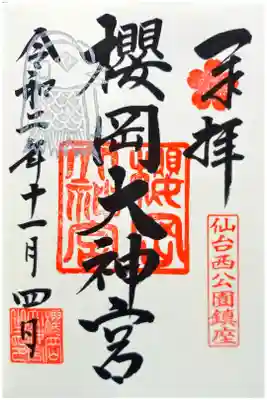 奉拝
仙台西公園鎮座
櫻岡大神宮
櫻岡
大神宮
令和二年十一月四日